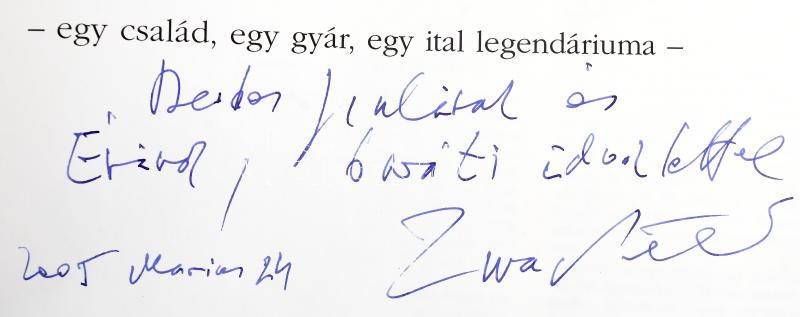 – egy család, egy gyár, egy ital legendáriuma –
és
baráti üdvözlettel
2005 Március 24 Zwack Péter